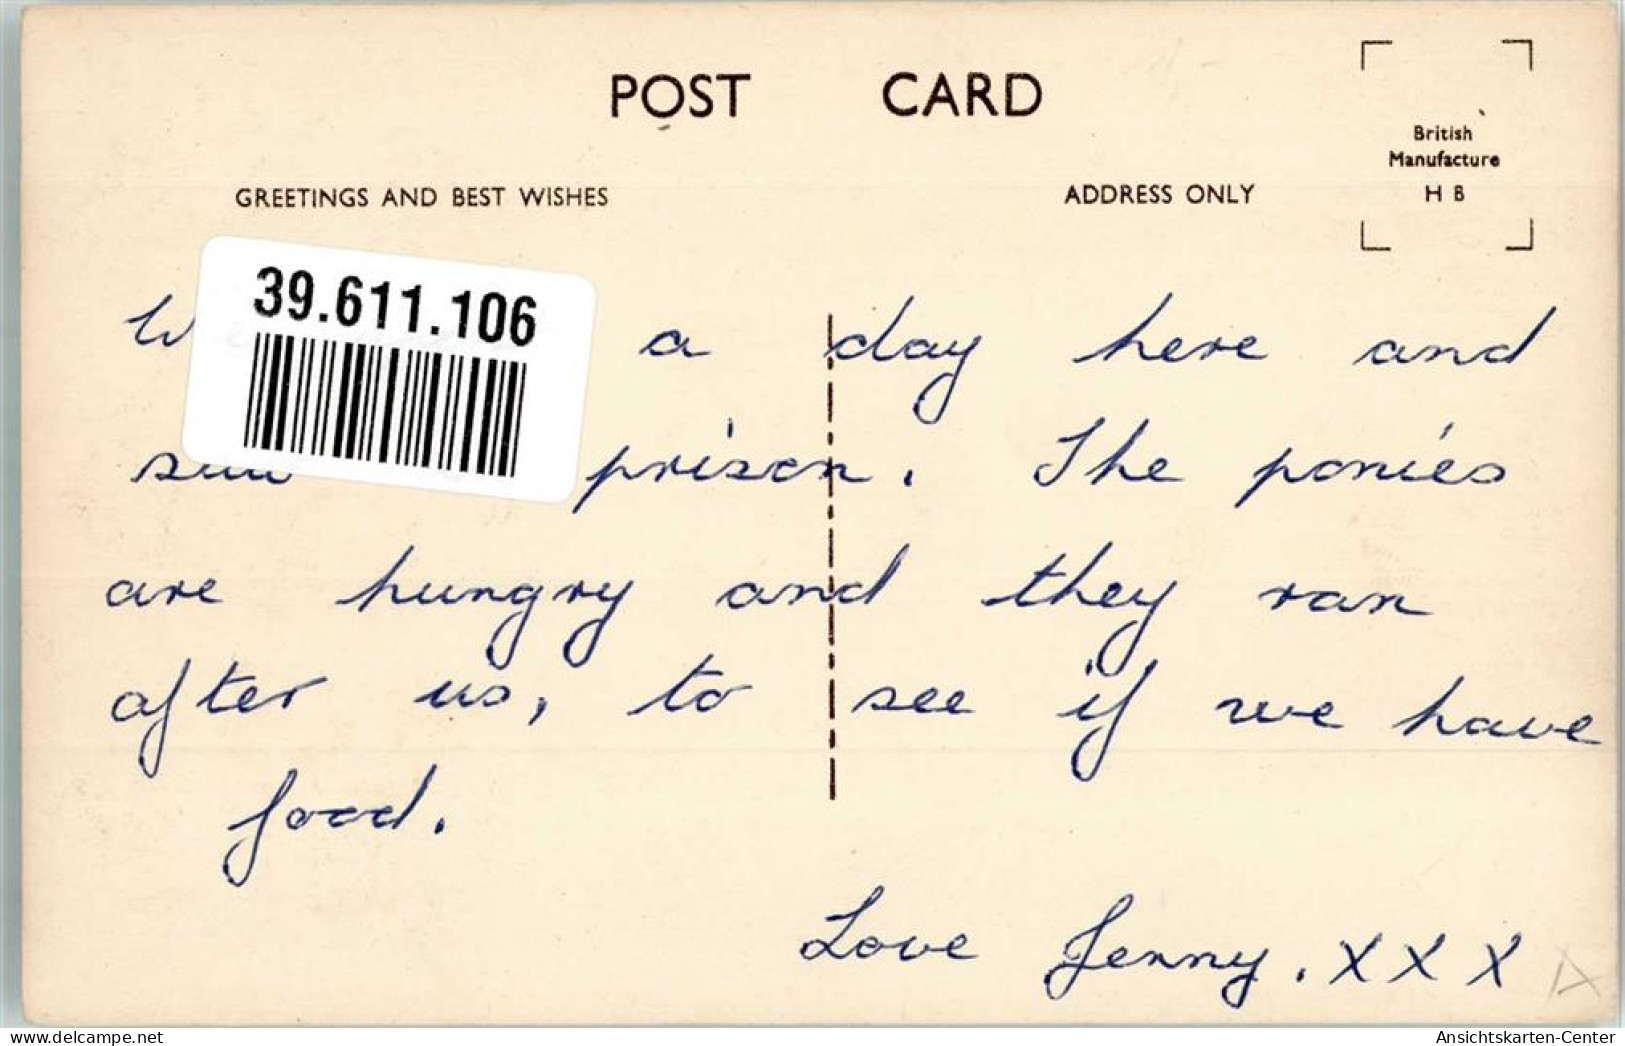 POST CARD
British
Manufacture
H B
GREETINGS AND BEST WISHES
ADDRESS ONLY
39.611.106
a day here and
prison. The ponies
are hungry and they ran
after us, to see if we have
food.
Love Jenny. X X X
AnsichtsKarten-Center